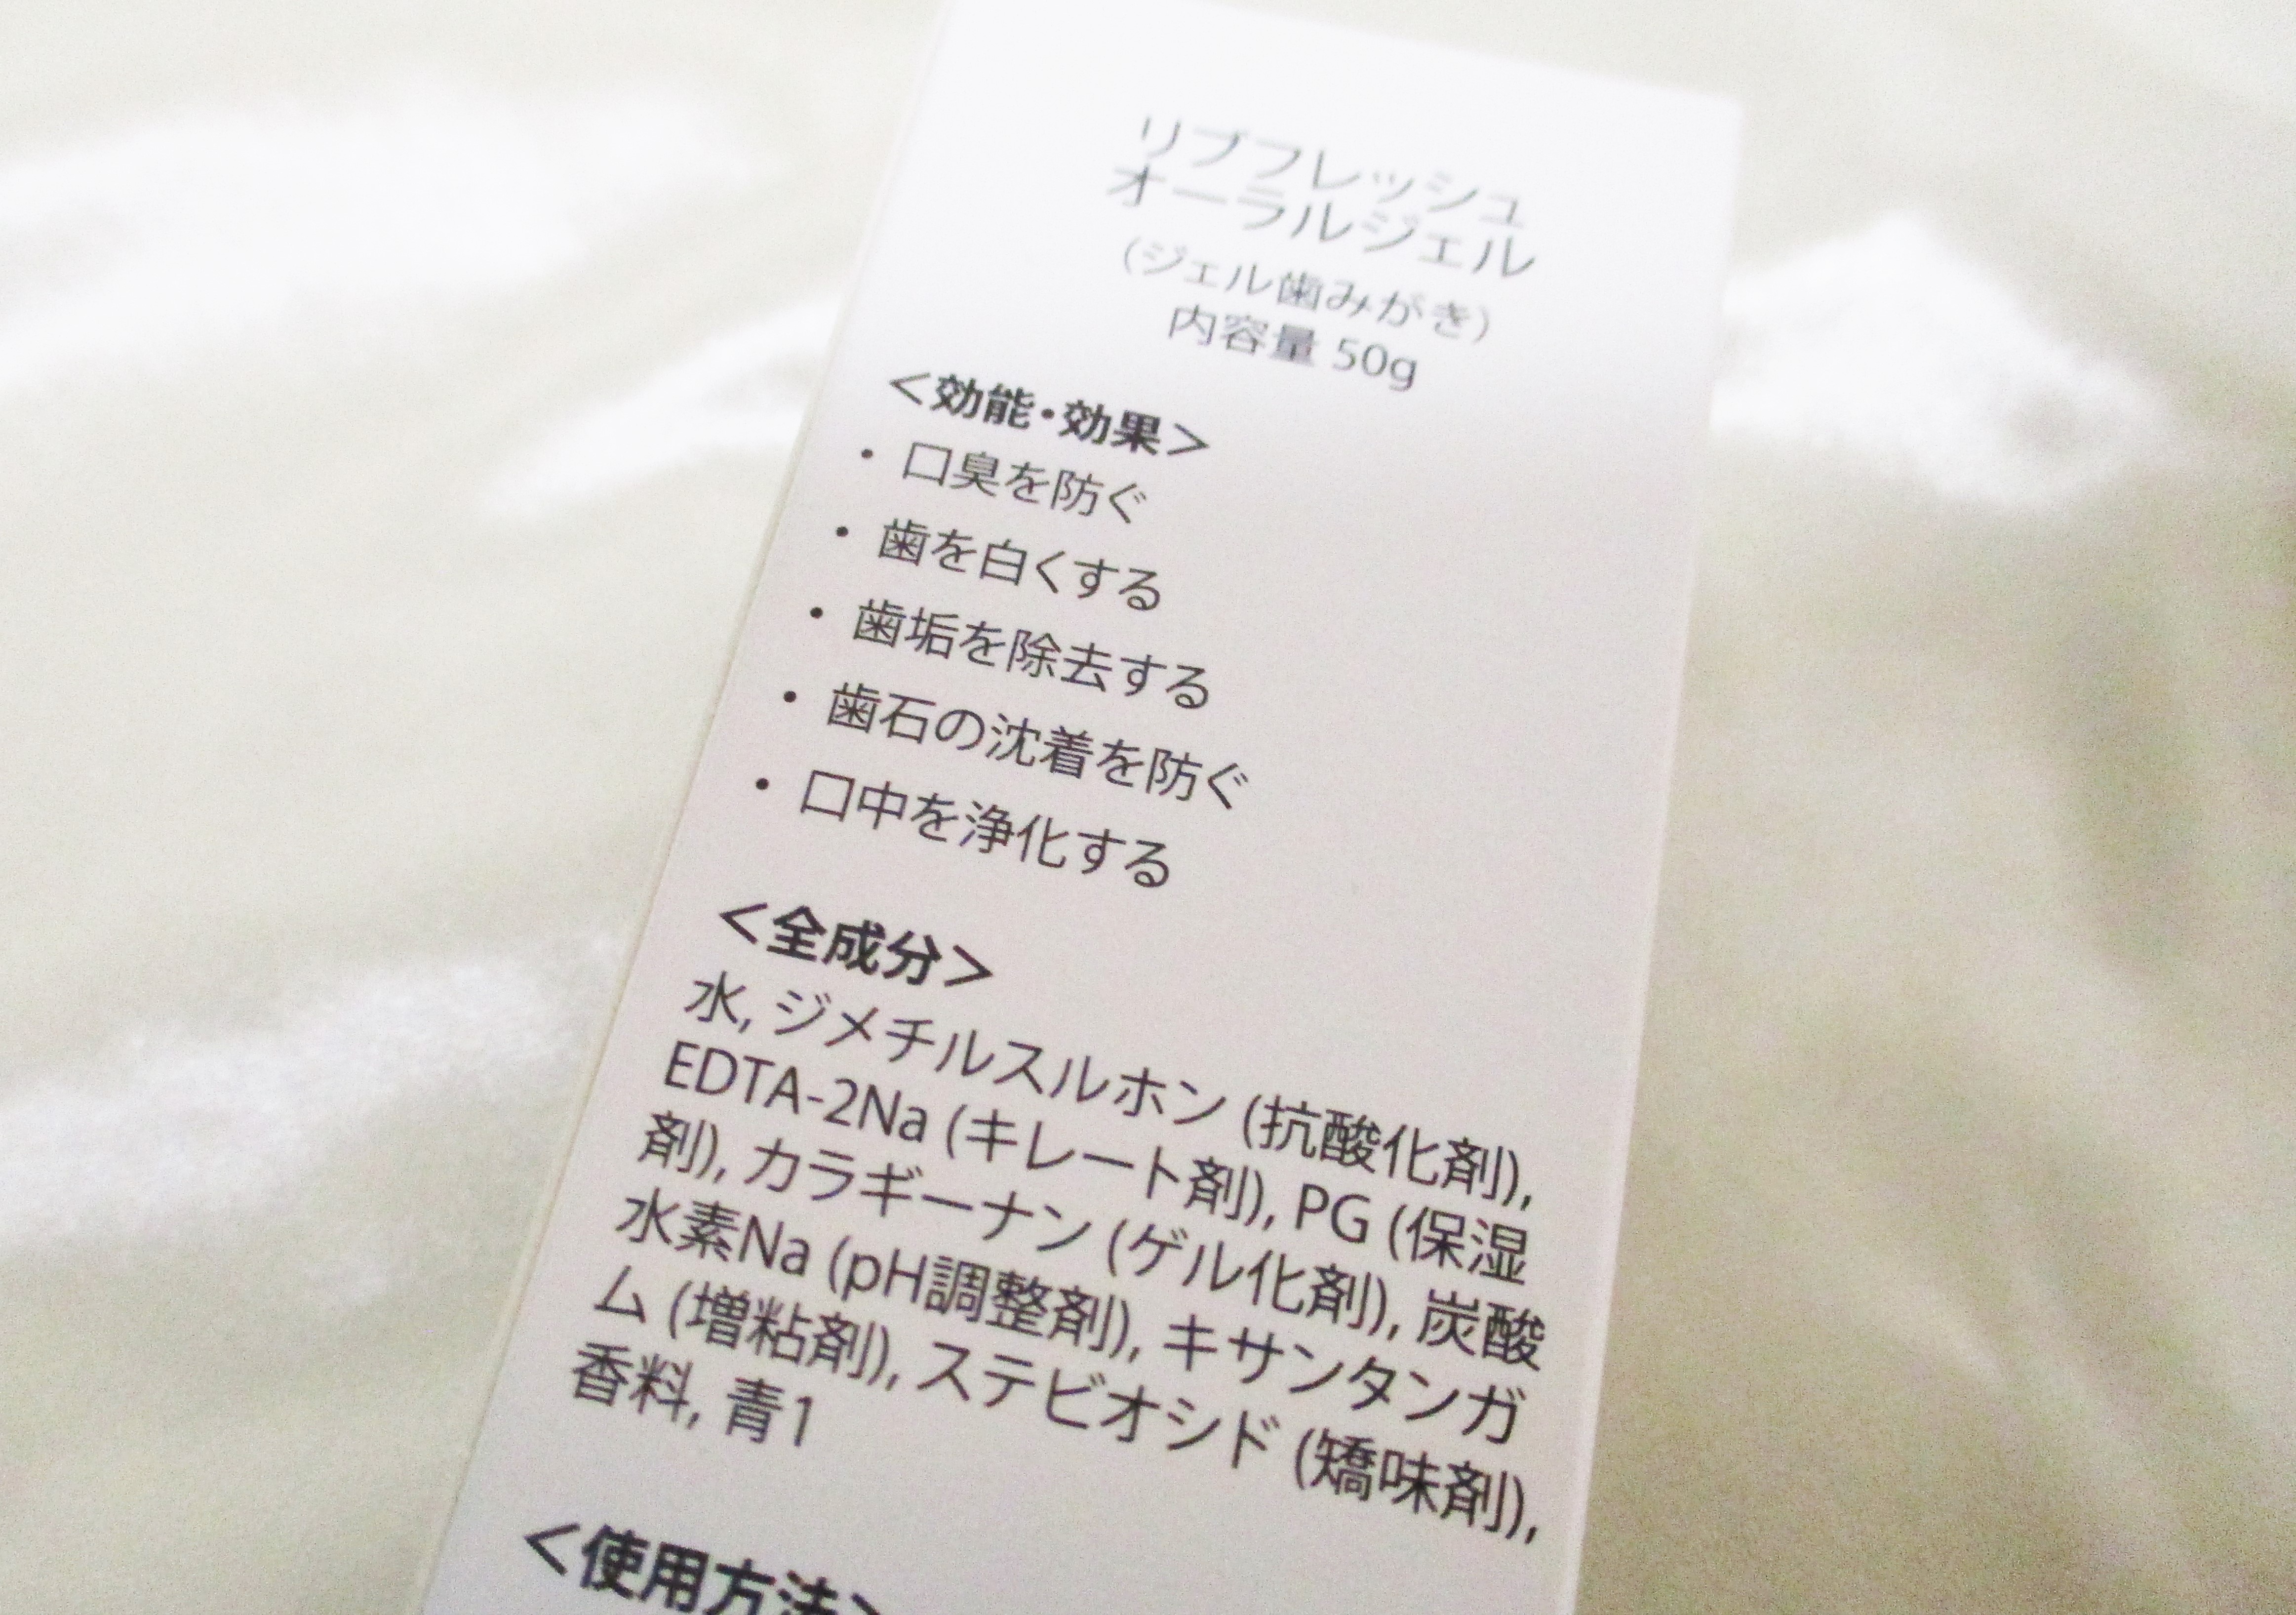 リブフレッシュ
オーラルジェル
(ジェル歯みがき)
内容量 50g
＜効能・効果＞
・ 口臭を防ぐ
・ 歯を白くする
・ 歯垢を除去する
・ 歯石の沈着を防ぐ
・ 口中を浄化する
＜全成分＞
水, ジメチルスルホン (抗酸化剤),
EDTA-2Na (キレート剤), PG (保湿
剤), カラギーナン (ゲル化剤), 炭酸
水素Na (pH調整剤), キサンタンガ
ム (増粘剤), ステビオシド (矯味剤),
香料, 青1
＜使用方法＞